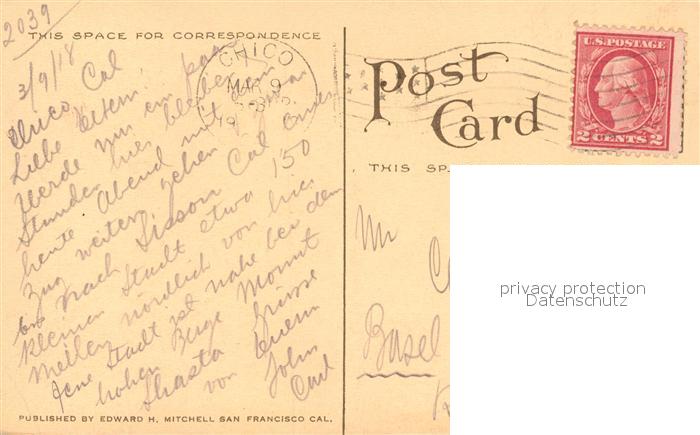 2039
THIS SPACE FOR CORRESPONDENCE
CHICO
MAR 9
3/9/18
Chico, Cal
Liebe Eltern
Werde nur ein paar
Stunden hier bleiben
heute Abend mit
Zug weiter gehen
bis nach Sisson Cal einer
kleinen Stadt etwa 150
Meilen nördlich von hier
Jene Stadt ist nahe bei dem
hohen Berge Mount
Shasta Grüsse
von Euerm
John
Carl
PUBLISHED BY EDWARD H. MITCHELL SAN FRANCISCO CAL.
Post
Card
U.S. POSTAGE
2 CENTS 2
THIS
Mr
Basel
privacy protection
Datenschutz